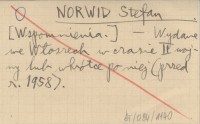 O NORWID Stefan
[Wspomnienia.] – Wydane
we Włoszech w czasie II woj-
ny lub wkrótce po niej (przed
r. 1958).